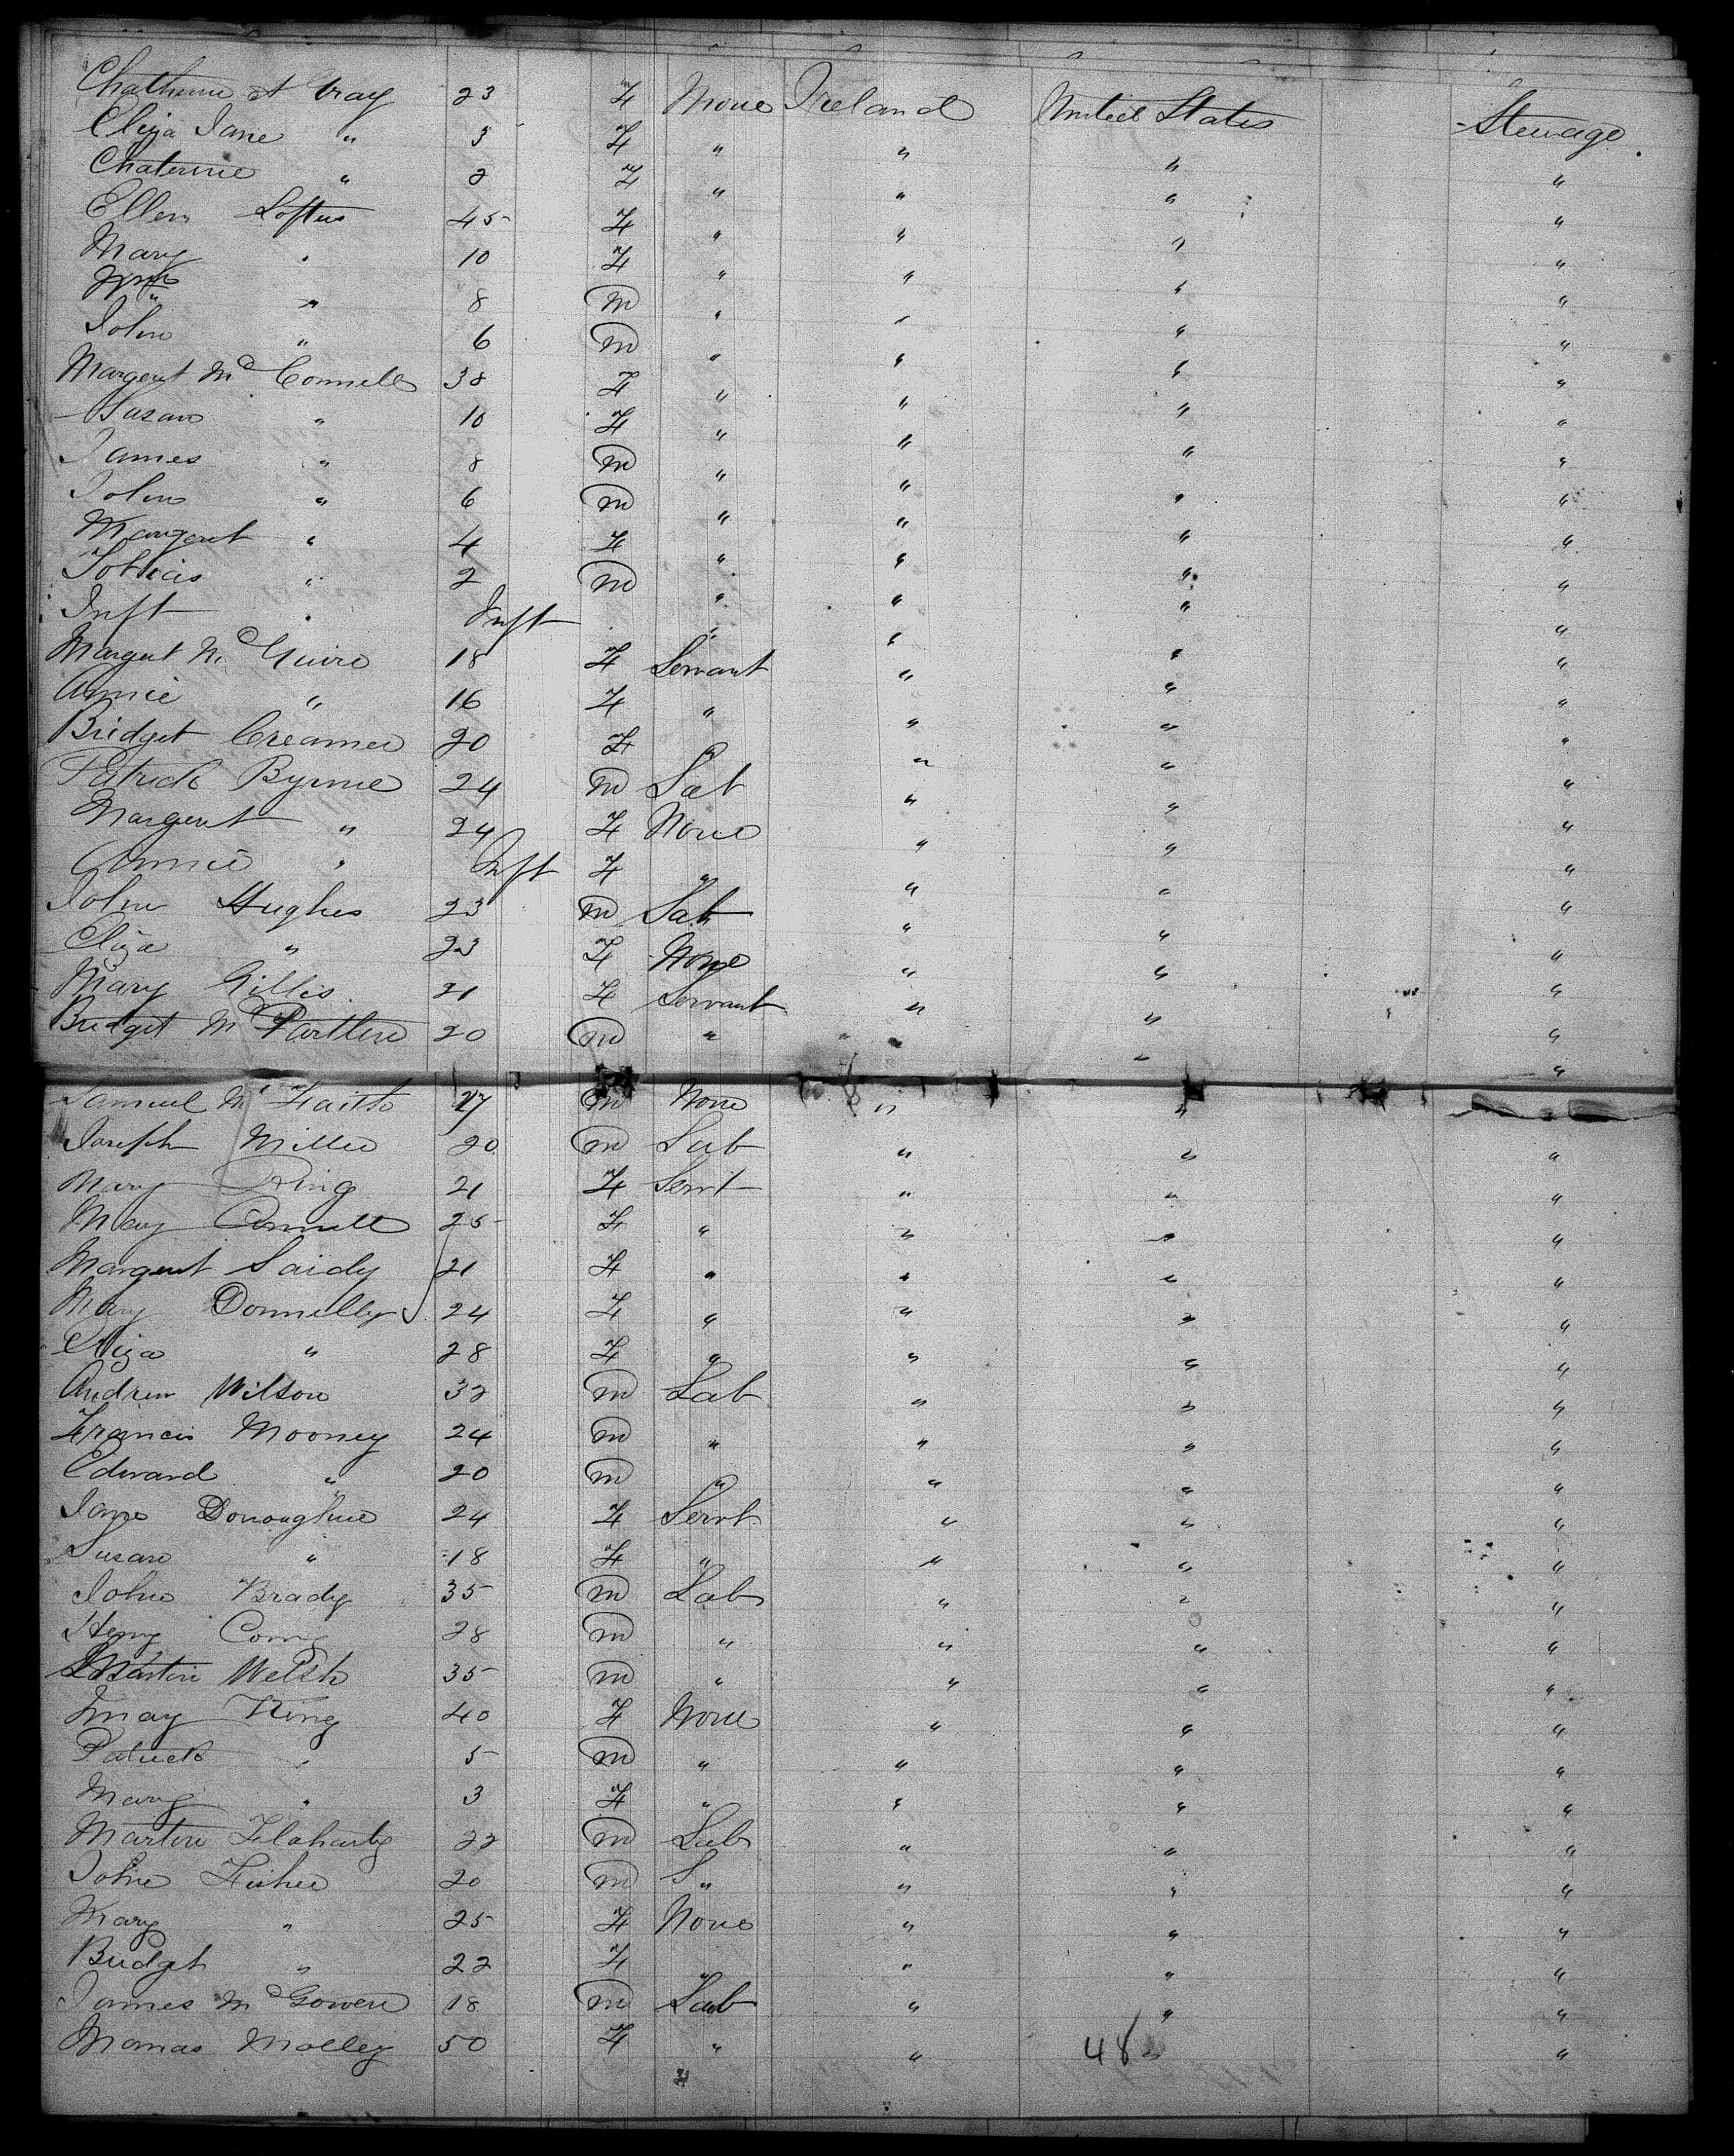 Chatherine A Gray 23 F None Ireland United States Steerage
Eliza Jane " 5 F " " " "
Chaterine " 2 F " " " "
Ellen Loftus 45 F " " " "
Mary " 10 F " " " "
Wm " 8 M " " " "
John " 6 M " " " "
Margert McConnell 38 F " " " "
Susan " 10 F " " " "
James " 8 M " " " "
John " 6 M " " " "
Margaret " 4 F " " " "
Tobias " 2 M " " " "
Inft " Inft " " " "
Margert McGuire 18 F Servant " " "
Annie " 16 F " " " "
Bridget Creamer 20 F " " " "
Patrick Byrne 24 M Lab " " "
Margert " 24 F None " " "
Annie " Inft F " " " "
John Hughes 23 M Lab " " "
Eliza " 23 F None " " "
Mary Gilles 21 F Servant " " "
Bridget McPartlin 20 M " " " "
Samuel McFaith 27 M None " "
Joseph Miller 20 M Lab " " "
Mary King 21 F Servt " " "
Mary Connell 25 F " " " "
Margert Saidy 21 F " " " "
Mary Donnelly 24 F " " " "
Eliza " 28 F " " " "
Andrew Wilson 32 M Lab " " "
Francis Mooney 24 M " " " "
Edward " 20 M " " " "
Jane Donoughue 24 F Servt " " "
Susan " 18 F " " " "
John Brady 35 M Lab " " "
Henry 28 M " " " "
Martin Welsh 35 M " " " "
King 40 F None " " "
Patrick " 5 M " " " "
Mary " 3 F " " " "
Martin Flaharty 22 M Lab " " "
John Fisher 20 M " " " "
Mary " 25 F None " " "
Bridget " 22 F " " " "
James McGowen 18 M Lab " " "
Molley 50 F " " " "
48